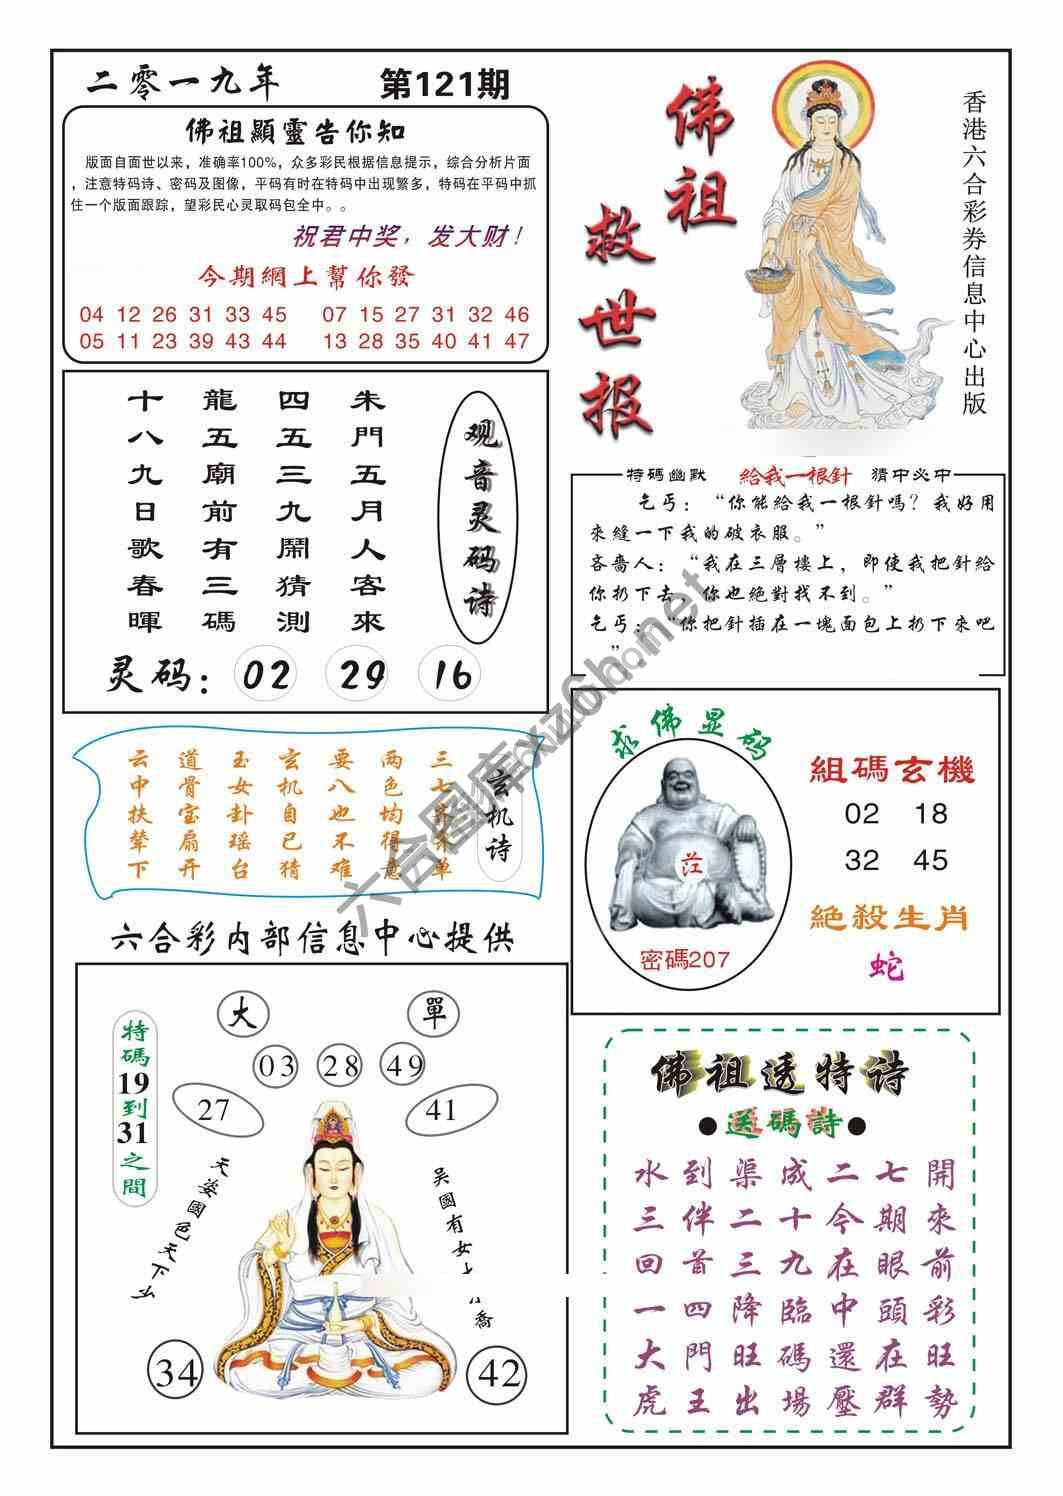 二零一九年 第121期
佛祖顯靈告你知
版面自面世以来，准确率100%，众多彩民根据信息提示，综合分析片面
，注意特码诗、密码及图像，平码有时在特码中出现繁多，特码在平码中抓
住一个版面跟踪，望彩民心灵取码包全中。。
祝君中奖，发大财！
今期網上幫你發
04 12 26 31 33 45 07 15 27 31 32 46
05 11 23 39 43 44 13 28 35 40 41 47
佛祖
救世报
香港六合彩券信息中心出版
观音灵码诗
朱門五月人客來
四五三九鬧猜測
龍五廟前有三碼
十八九日歌春暉
灵码：02 29 16
特碼幽默 給我一根針 猜中必中
乞丐：“你能給我一根針嗎？我好用
來縫一下我的破衣服。”
吝嗇人：“我在三層樓上，即使我把針給
你扔下去，你也絕對找不到。”
乞丐：“你把針插在一塊面包上扔下來吧
”
玄机诗
三七
两色均得意
要八也不难
玄机自己猜
玉女卦瑶台
道骨宝扇开
云中扶辇下
求佛显码
密碼207
組碼玄機
02 18
32 45
絕殺生肖
蛇
六合彩内部信息中心提供
大 單
03 28 49
27 41
特碼19到31之間
天姿國色天下
吳國有女
喬
34 42
佛祖透特诗
●送碼詩●
水到渠成二七開
三伴二十今期來
回首三九在眼前
一四降臨中頭彩
大門旺碼還在旺
虎王出場壓群勢
六合图库